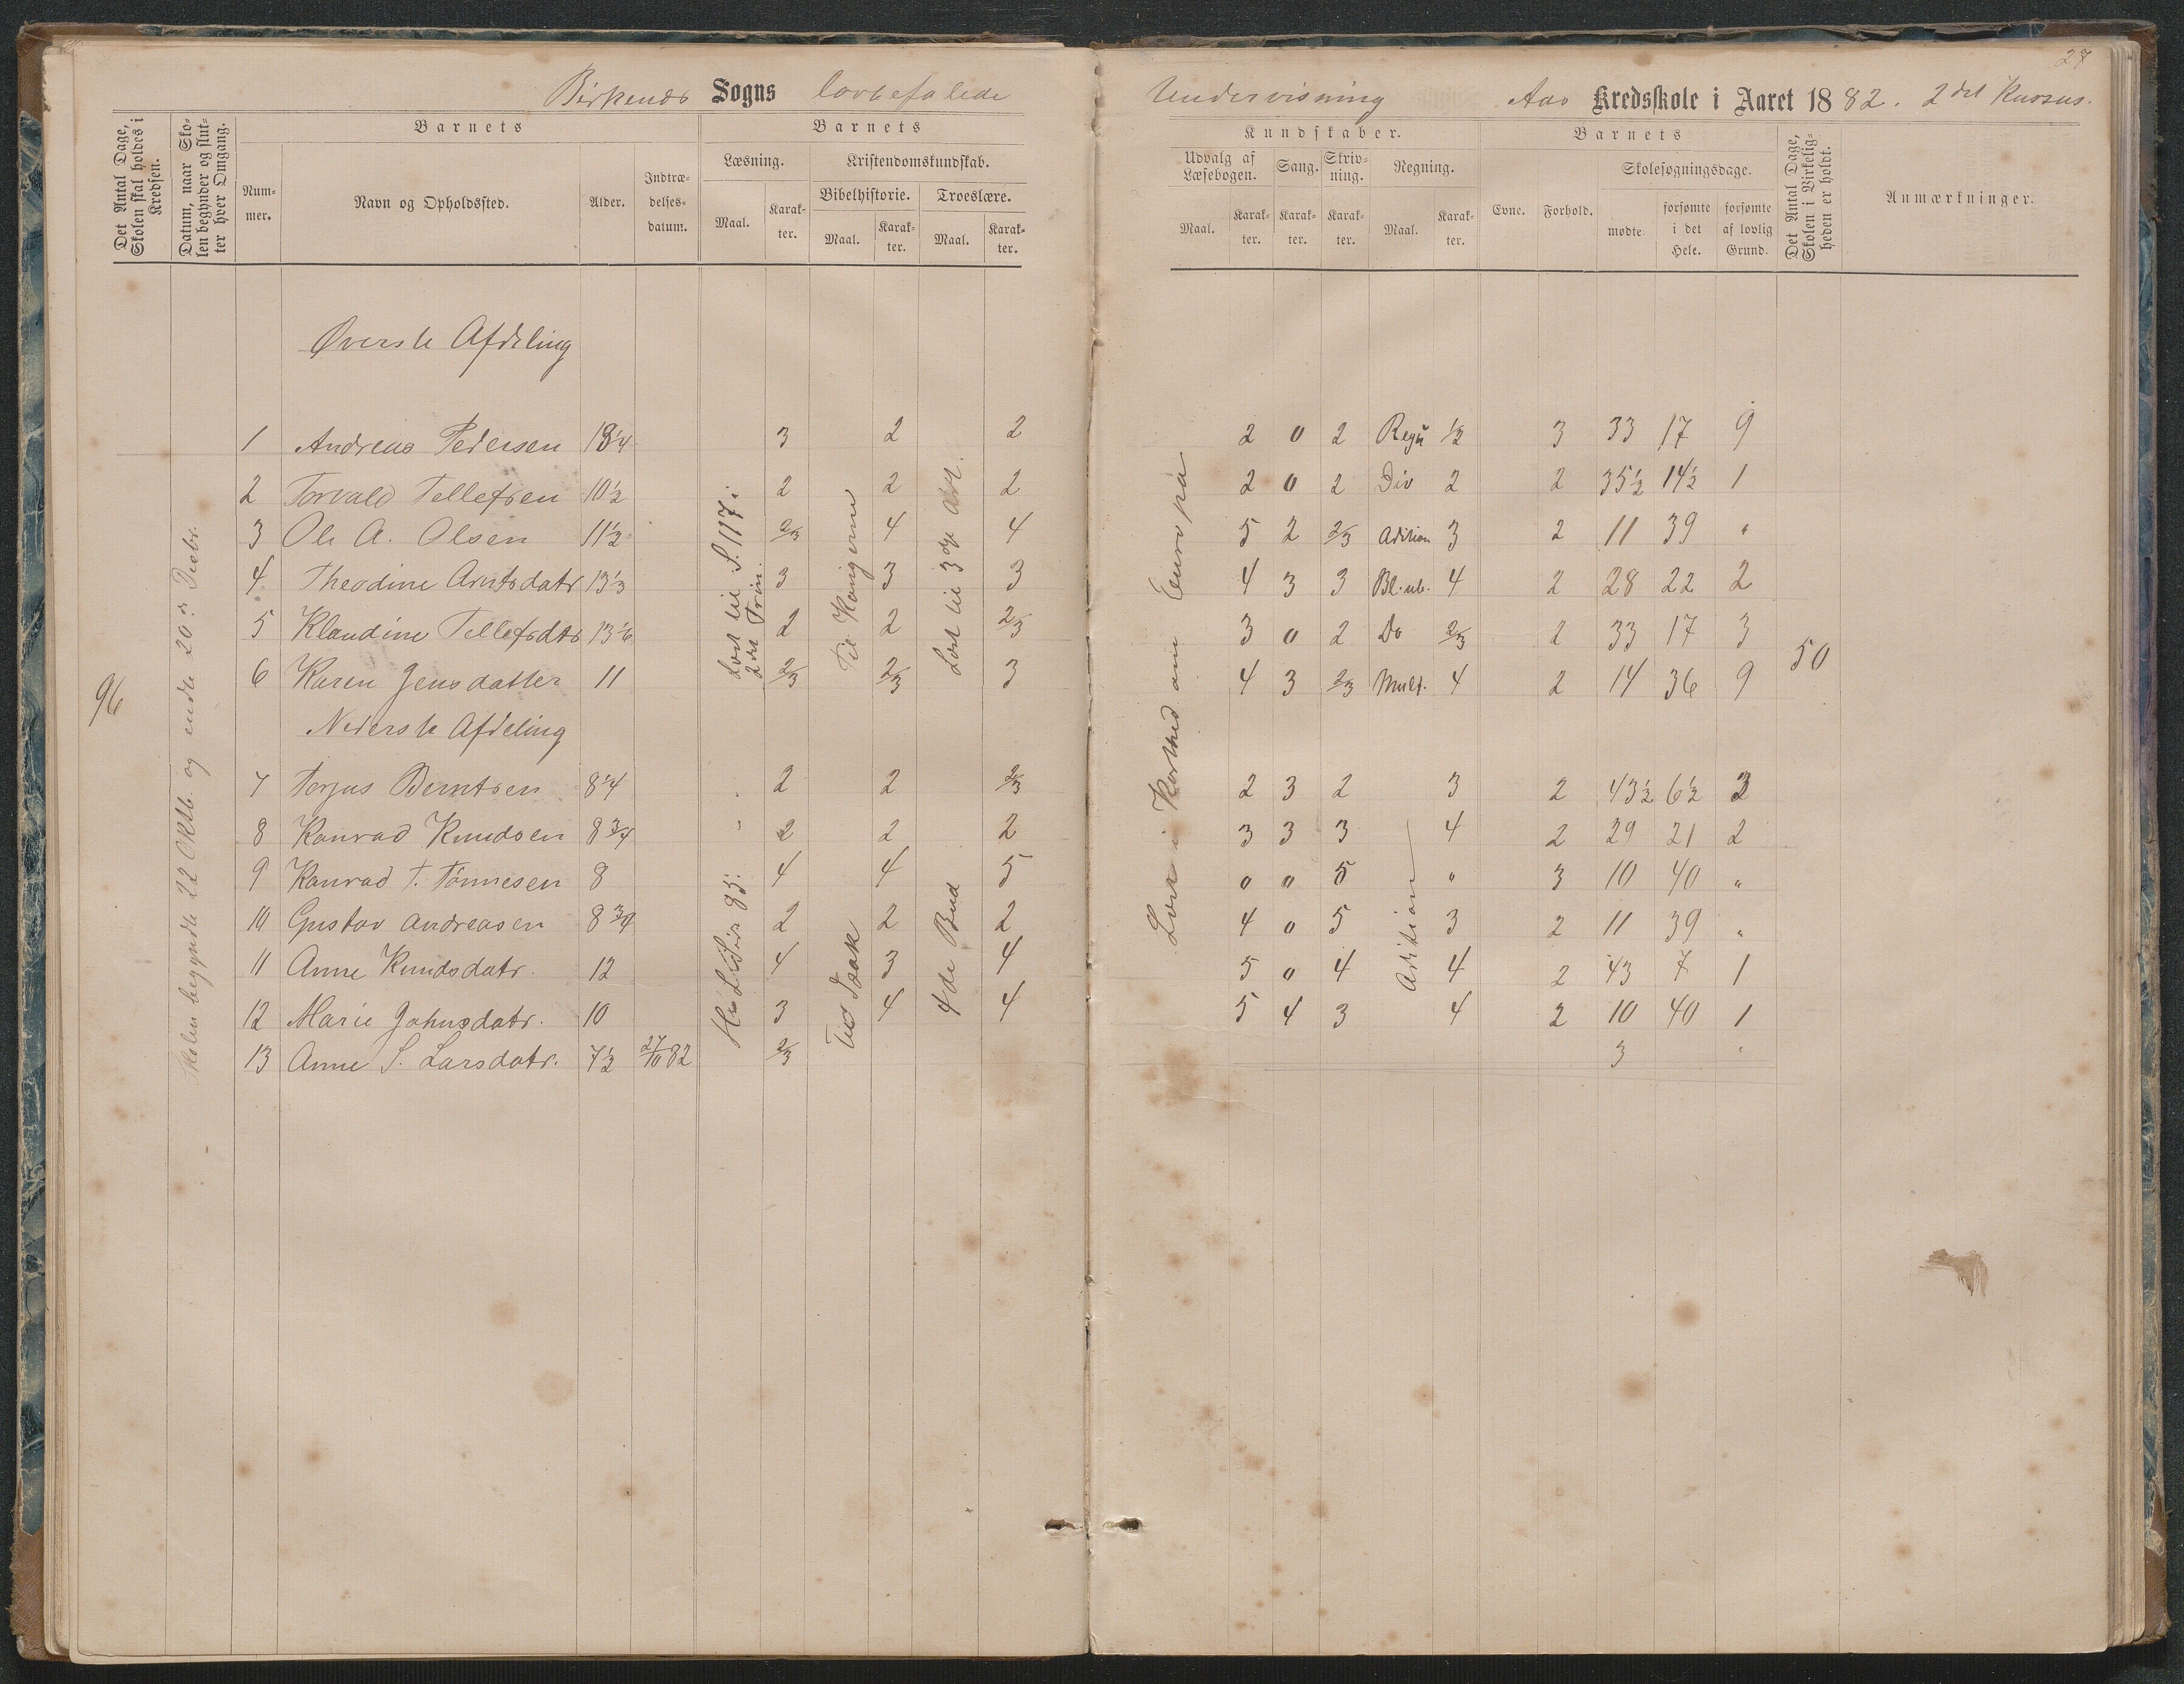 Birkenes Sogns lovbefalede Undervisning Aas Kredsskole i Aaret 1882. 2det Kursus.
27
Det Antal Dage, Skolen skal holdes i Kredsen.
Datum, naar Skolen begynder og slutter hver Omgang.
Barnets
Nummer.
Navn og Opholdssted.
Alder.
Indtrædelsesdatum.
Barnets
Læsning.
Maal.
Karakter.
Kristendomskundskab.
Bibelhistorie.
Maal.
Karakter.
Troeslære.
Maal.
Karakter.
Kundskaber.
Udvalg af Læsebogen.
Maal.
Karakter.
Sang.
Karakter.
Skrivning.
Karakter.
Regning.
Maal.
Karakter.
Barnets
Evne.
Forhold.
Skolesøgningsdage.
mødte
forsømte i det Hele.
forsømte af lovlig Grund.
Det Antal Dage, Skolen i Virkeligheden er holdt.
Anmærkninger.
96
Skolen begyndte 22 Oktb. og endte 20de Decbr.
Øverste Afdeling
1 Andreas Pedersen 13 1/4 3 2 2 2 0 2 Regu 1/2 3 33 17 9
2 Torvald Tellefsen 10 1/2 2 2 2 2 0 2 Div 2 2 35 1/2 14 1/2 1
3 Ole A. Olsen 11 1/2 2/3 4 4 5 2 2/3 Adition 3 2 11 39 "
4 Theodine Arntsdatr 13 1/3 3 3 3 4 3 3 Bl. ub. 4 2 28 22 2
5 Klaudine Tellefsdtr 13 1/6 2 2 2/3 3 0 2 Do 2/3 2 33 17 3
6 Karen Jensdatter 11 2/3 2/3 3 4 3 2/3 Mult. 4 2 14 36 9
Læst til S. 117 i
2det Trin.
Til Kongerne
Læst til 3die Art.
Læst i Korthed om Europa
50
Nederste Afdeling
7 Terjus Berntsen 8 1/4 2 2 2/3 2 3 2 3 2 43 1/2 6 1/2 3
8 Konrad Knudsen 8 3/4 2 2 2 3 3 3 4 2 29 21 2
9 Konrad T. Tönnesen 8 4 4 5 0 0 5 " 3 10 40 "
10 Gustav Andreasen 8 3/4 2 2 2 4 0 5 3 2 11 39 "
11 Anne Knudsdatr. 12 4 3 4 5 0 4 4 2 43 7 1
12 Marie Johnsdatr. 10 3 4 4 5 4 3 4 2 10 40 1
13 Anne S. Larsdatr. 7 1/2 27/10 82 2/3 3 "
Ved Isak
4de Bud
Adition